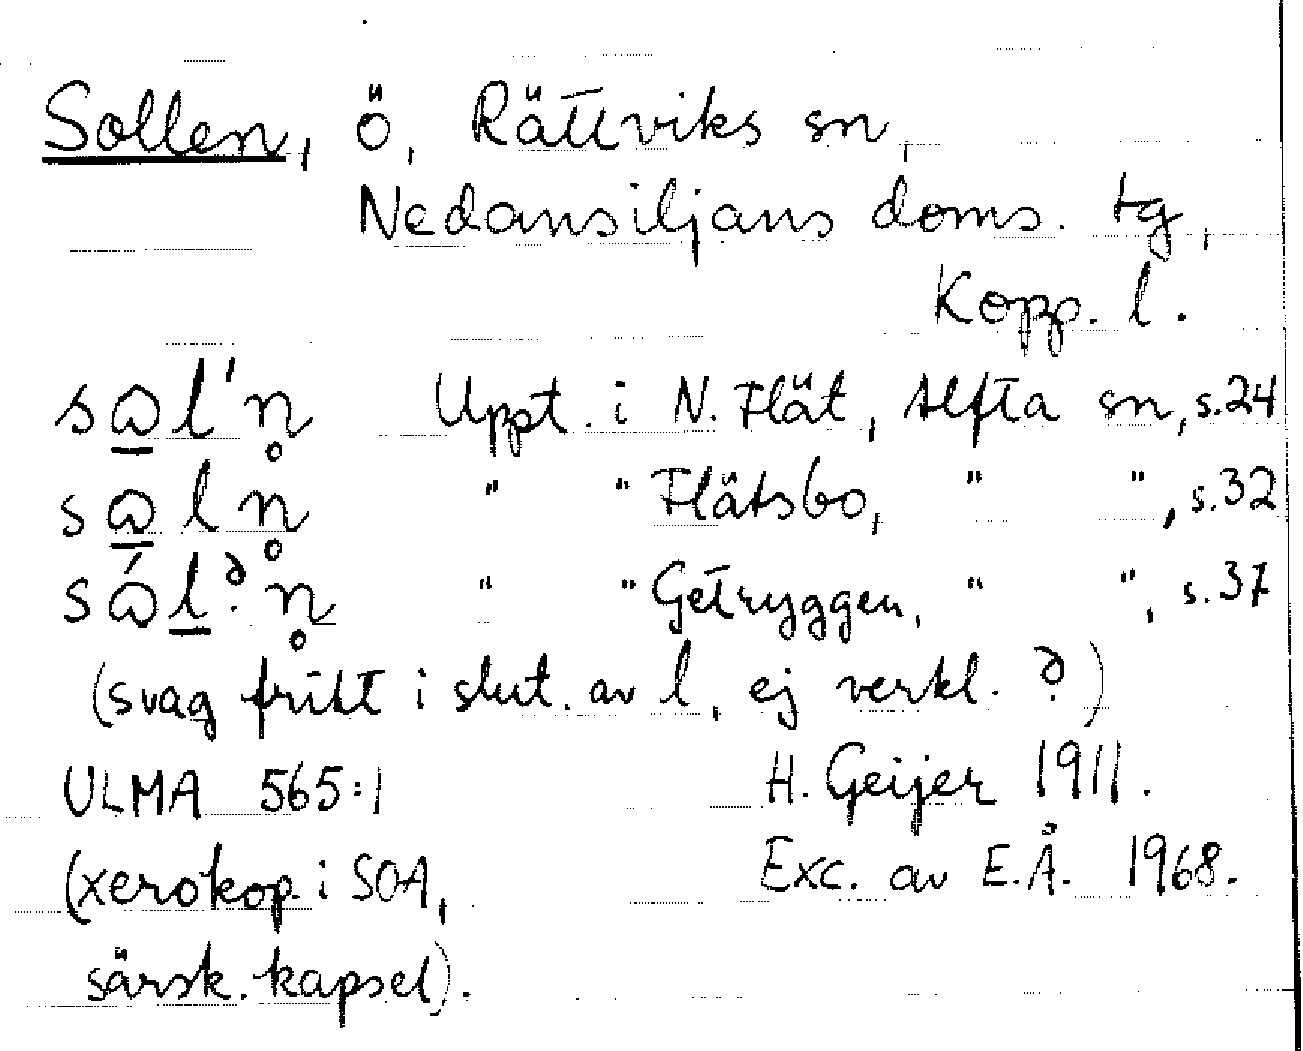 Sollen, ö, Rättviks sn,
Nedansiljans doms. tg,
Kopp. l.
sɷ̱l'n̥ Uppt. i N. Flät, Alfta sn, s.24
sɷ̱ln̥ " " Flätsbo, " ", s.32
sɷ́ḻᵊ̣n̥ " " Getryggen, " ", s.37
(svag frikt i slut. av l, ej verkl. ə̣)
ULMA 565:1 H. Geijer 1911.
(xerokop. i SOA, Exc. av E.Å. 1968.
särsk. kapsel).